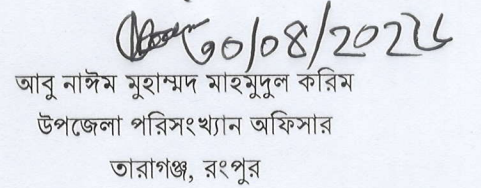 আবু নাঈম মুহাম্মদ মাহমুদুল করিম
উপজেলা পরিসংখ্যান অফিসার
তারাগঞ্জ, রংপুর